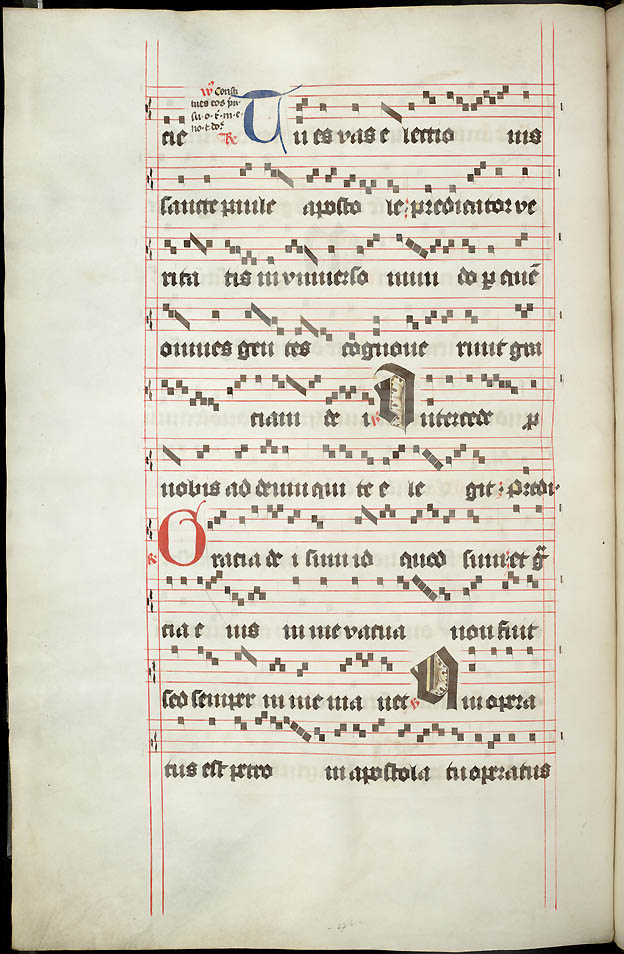 ℣ Consti
tues eos prī
su · o · t · m · e
no · t · do
cie ℟ Tu es vas electio nis
sancte paule aposto le predicator ve
rita tis in vniuerso mun do p quē
omnes gen tes cognoue runt gra
ciam de i ℣ Intercede p
nobis ad deum qui te e le git · Predi
℟ Gracia de i sum id quod sum et gr̄
cia e ius in me vacua non fuit
sed semper in me ma net ℣ Qui opera
tus est petro in apostola tu operatus